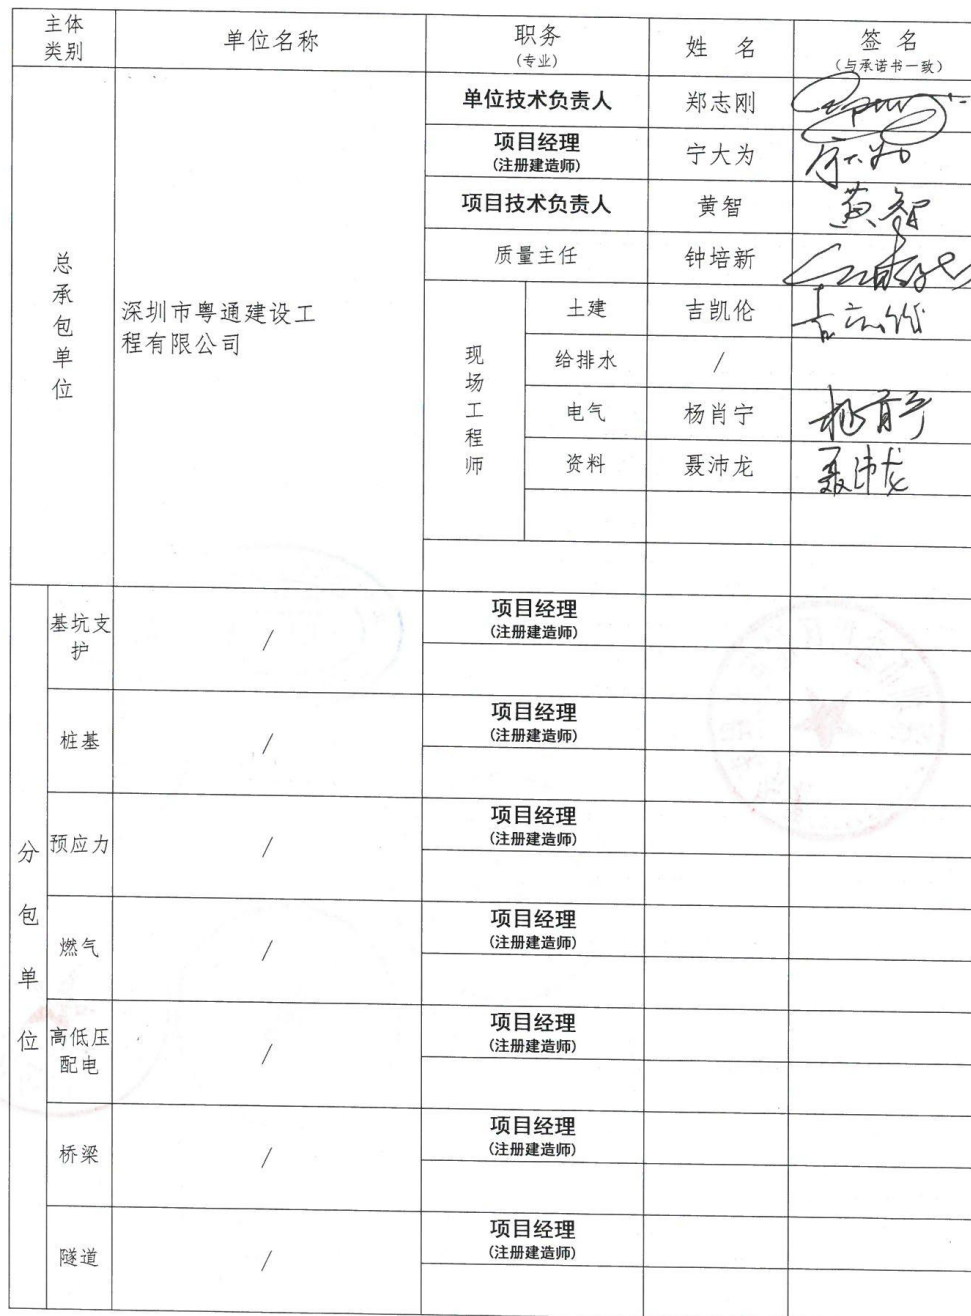 主体
类别
单位名称
职务
(专业)
姓 名
签 名
(与承诺书一致)
总承包单位
深圳市粤通建设工
程有限公司
单位技术负责人
郑志刚
项目经理
(注册建造师)
宁大为
项目技术负责人
黄智
黄智
质量主任
钟培新
现场工程师
土建
吉凯伦
吉凯伦
给排水
/
电气
杨肖宁
杨肖宁
资料
聂沛龙
聂沛龙
分包单位
基坑支
护
/
项目经理
(注册建造师)
桩基
/
项目经理
(注册建造师)
预应力
/
项目经理
(注册建造师)
燃气
/
项目经理
(注册建造师)
高低压
配电
/
项目经理
(注册建造师)
桥梁
/
项目经理
(注册建造师)
隧道
/
项目经理
(注册建造师)